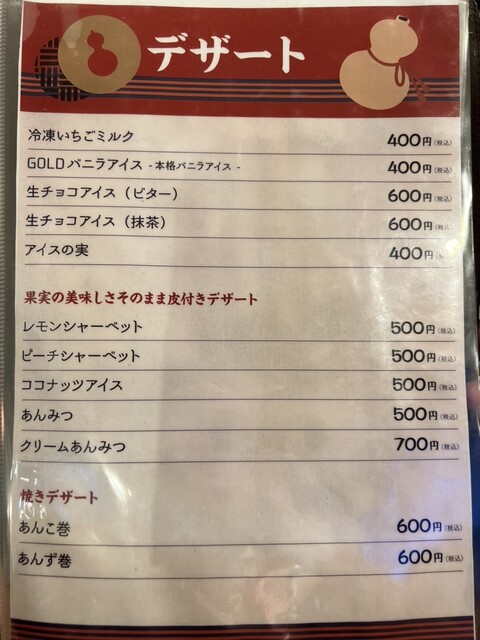 デザート
冷凍いちごミルク 400円(税込)
GOLDバニラアイス - 本格バニラアイス - 400円(税込)
生チョコアイス（ビター） 600円(税込)
生チョコアイス（抹茶） 600円(税込)
アイスの実 400円(税込)
果実の美味しさそのまま皮付きデザート
レモンシャーベット 500円(税込)
ピーチシャーベット 500円(税込)
ココナッツアイス 500円(税込)
あんみつ 500円(税込)
クリームあんみつ 700円(税込)
焼きデザート
あんこ巻 600円(税込)
あんず巻 600円(税込)